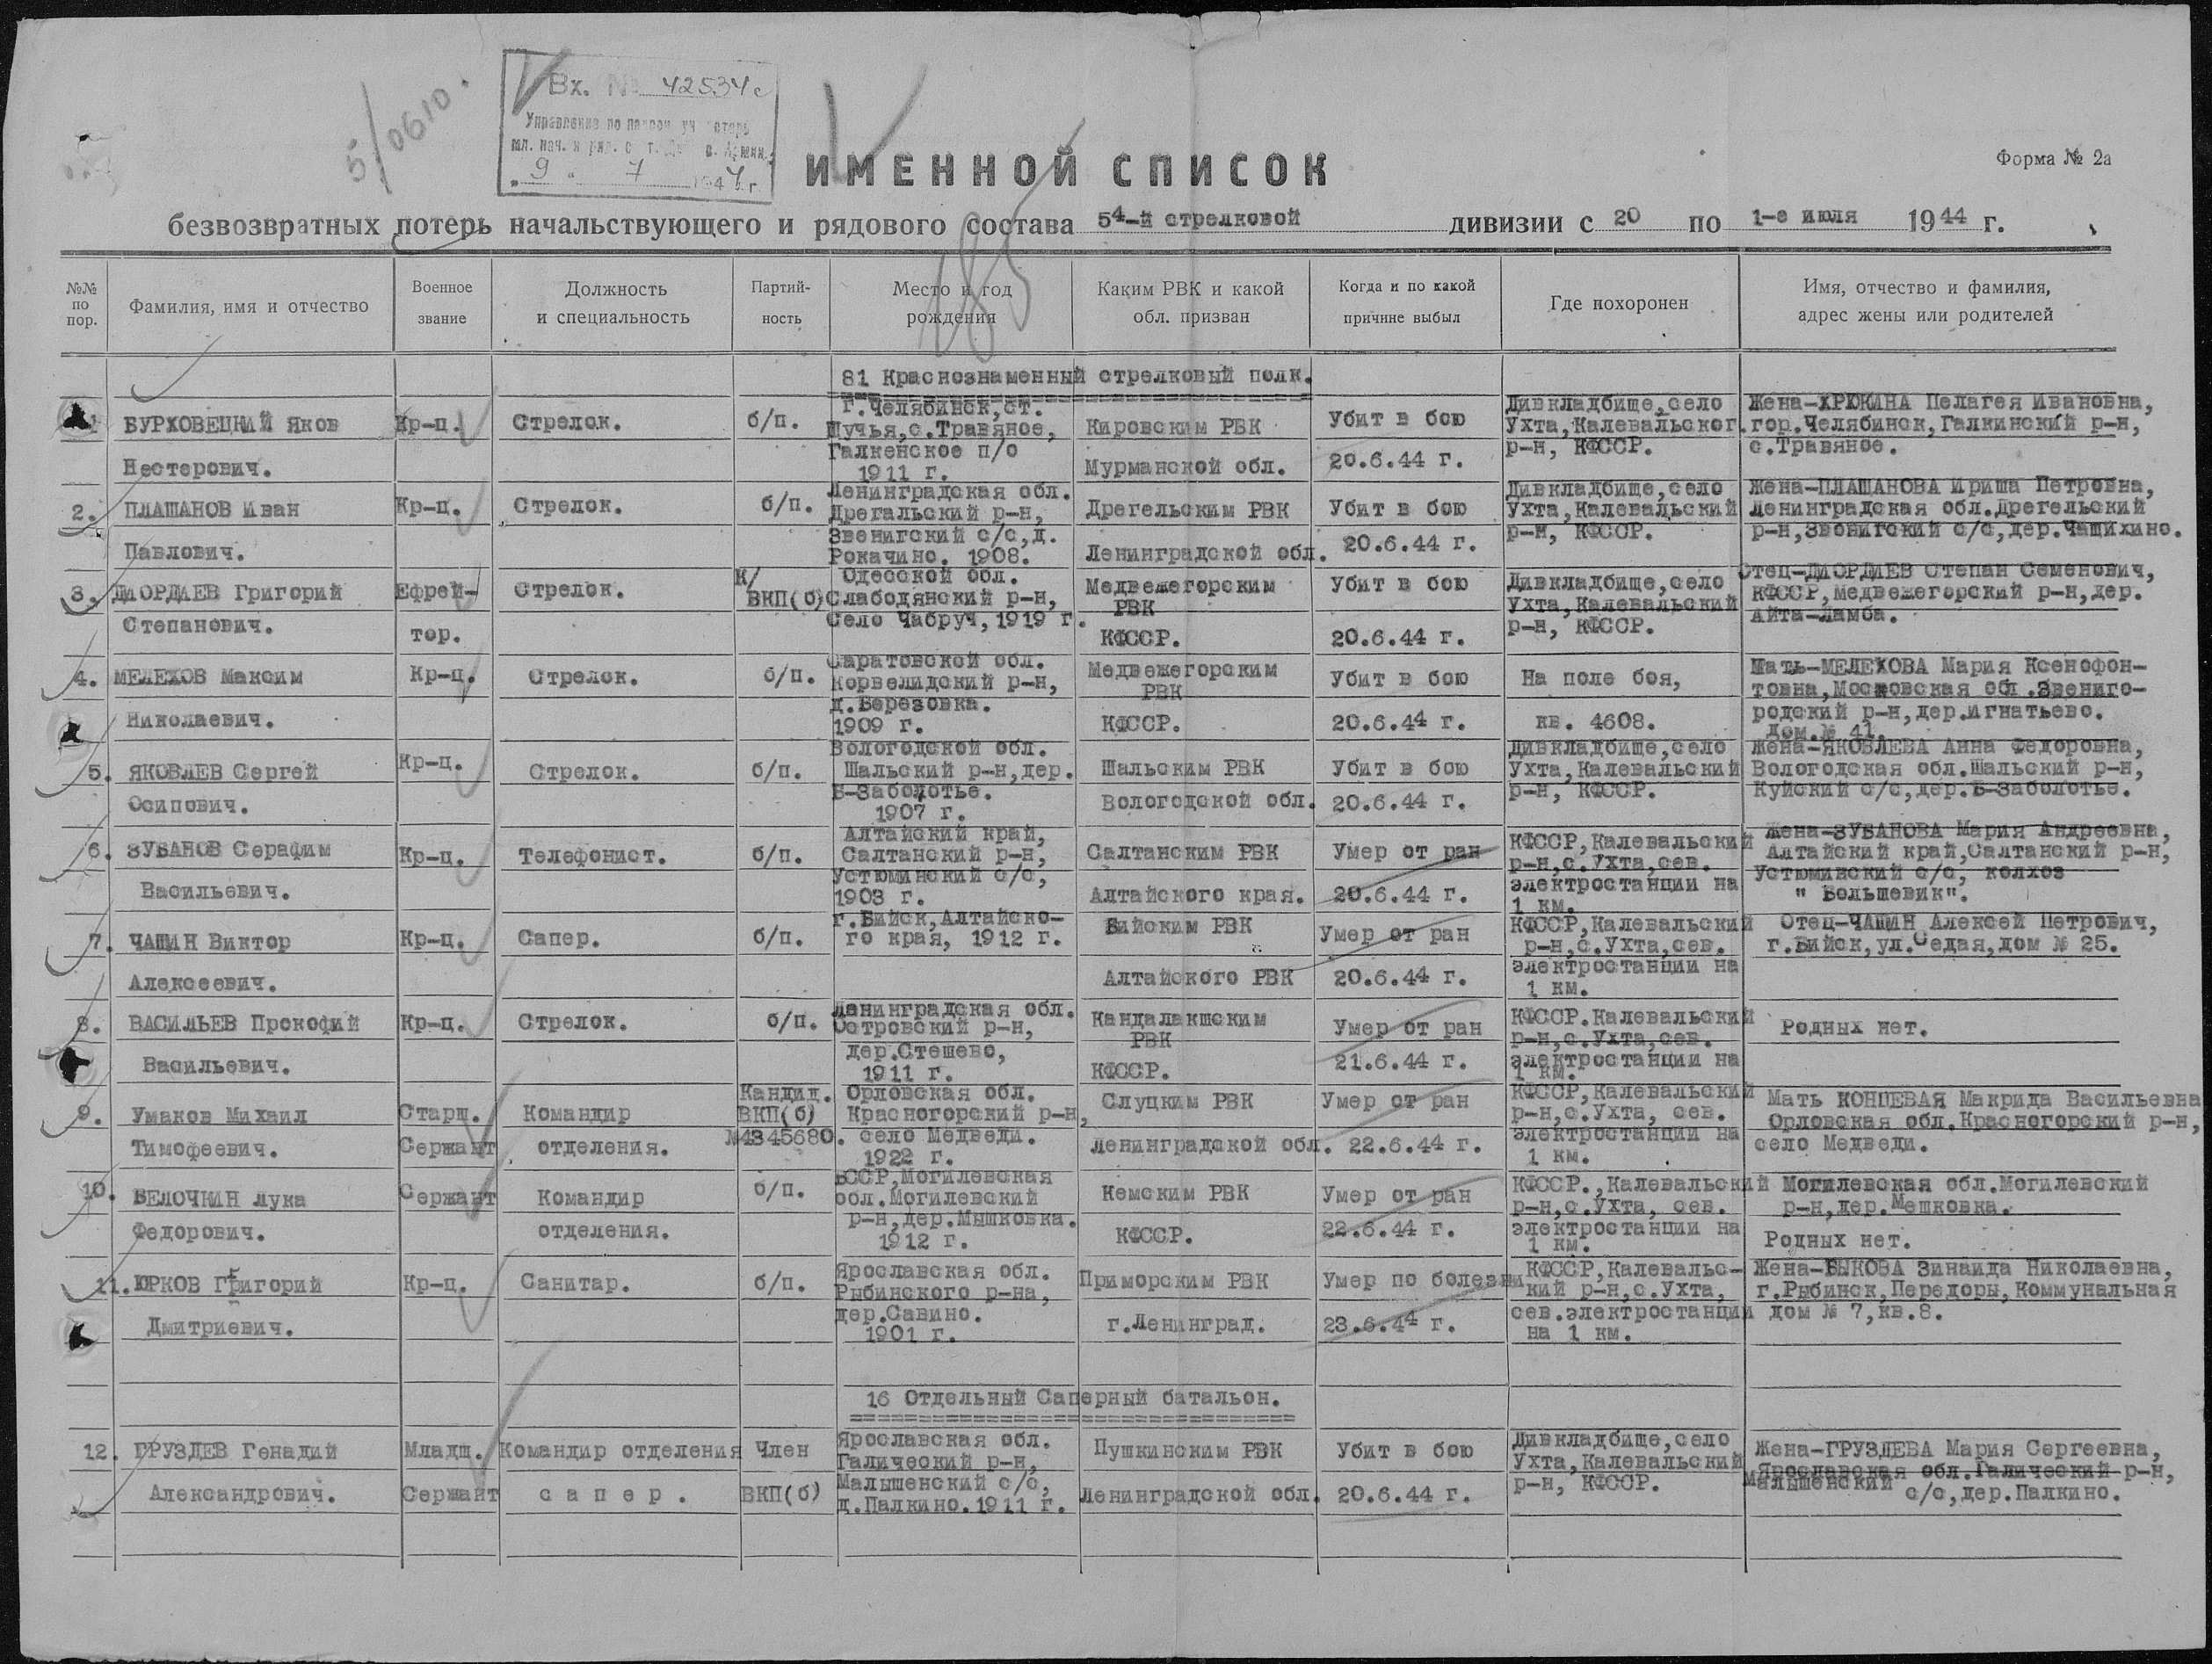 5/0610.
Вх. № 42534с
Управление по
мл. нач. и ряд.
"9" 7 1944 г.
ИМЕННОЙ СПИСОК
Форма № 2а
безвозвратных потерь начальствующего и рядового состава 54-й стрелковой дивизии с 20 по 1-е июля 1944 г.
185
№№ по пор.
Фамилия, имя и отчество
Военное звание
Должность и специальность
Партий-ность
Место и год рождения
Каким РВК и какой обл. призван
Когда и по какой причине выбыл
Где похоронен
Имя, отчество и фамилия, адрес жены или родителей
81 Краснознаменный стрелковый полк.
1 БУРХОВЕЦКИЙ Яков
Нестерович.
Кр-ц.
Стрелок.
б/п.
г.Челябинск,ст.
Щучья,с.Травяное,
Галкенское п/о
1911 г.
Кировским РВК
Мурманской обл.
Убит в бою
20.6.44 г.
Дивкладбище,село
Ухта,Калевальског.
р-н, КФССР.
Жена-ХРЮКИНА Пелагея Ивановна,
гор.Челябинск,Галкинский р-н,
с.Травяное.
2. ПЛАШАНОВ Иван
Павлович.
Кр-ц.
Стрелок.
б/п.
Ленинградская обл.
Дрегальский р-н,
Звенигский с/с,д.
Рокачино. 1908.
Дрегельским РВК
Ленинградской обл.
Убит в бою
20.6.44 г.
Дивкладбище,село
Ухта,Калевальский
р-н, КФССР.
Жена-ПЛАШАНОВА Ириша Петровна,
Ленинградская обл.Дрегельский
р-н,Звенигский с/с,дер.Чащихино.
3. ДИОРДИЕВ Григорий
Степанович.
Ефрей-
тор.
Стрелок.
К/
ВКП(б)
Одесской обл.
Слабодянский р-н,
Село Чабруч,1919 г.
Медвежегорским
РВК
КФССР.
Убит в бою
20.6.44 г.
Дивкладбище,село
Ухта,Калевальский
р-н, КФССР.
Отец-ДИОРДИЕВ Степан Семенович,
КФССР,Медвежегорский р-н,дер.
Айта-Ламба.
4. МЕЛЕХОВ Максим
Николаевич.
Кр-ц.
Стрелок.
б/п.
Саратовской обл.
Корвелидский р-н,
д.Березовка.
1909 г.
Медвежегорским
РВК
КФССР.
Убит в бою
20.6.44 г.
На поле боя,
кв. 4608.
Мать-МЕЛЕХОВА Мария Ксенофон-
товна,Московская обл.Звениго-
родский р-н,дер.Игнатьево.
Дом.№ 41.
5. ЯКОВЛЕВ Сергей
Осипович.
Кр-ц.
Стрелок.
б/п.
Вологодской обл.
Шальский р-н,дер.
Б-Заболотье.
1907 г.
Шальским РВК
Вологодской обл.
Убит в бою
20.6.44 г.
Дивкладбище,село
Ухта,Калевальский
р-н, КФССР.
Жена-ЯКОВЛЕВА Анна Федоровна,
Вологодская обл.Шальский р-н,
Куйский с/с,дер.Б-Заболотье.
6. ЗУБАНОВ Серафим
Васильевич.
Кр-ц.
Телефонист.
б/п.
Алтайский край,
Салтанский р-н,
Устюминский с/с,
1903 г.
Салтанским РВК
Алтайского края.
Умер от ран
20.6.44 г.
КФССР,Калевальский
р-н,с.Ухта,сев.
электростанции на
1 км.
Жена-ЗУБАНОВА Мария Андреевна,
Алтайский край,Салтанский р-н,
Устюминский с/с, колхоз
" Большевик".
7. ЧАЩИН Виктор
Алексеевич.
Кр-ц.
Сапер.
б/п.
г.Бийск,Алтайско-
го края, 1912 г.
Бийским РВК
Алтайского РВК
Умер от ран
20.6.44 г.
КФССР,Калевальский
р-н,с.Ухта,сев.
электростанции на
1 км.
Отец-ЧАЩИН Алексей Петрович,
г.Бийск,ул.Седая,дом № 25.
8. ВАСИЛЬЕВ Прокофий
Васильевич.
Кр-ц.
Стрелок.
б/п.
Ленинградская обл.
Островский р-н,
дер.Стешево,
1911 г.
Кандалакшским
РВК
КФССР.
Умер от ран
21.6.44 г.
КФССР.Калевальский
р-н,с.Ухта,сев.
электростанции на
1 км.
Родных нет.
9. Умаков Михаил
Тимофеевич.
Старш.
Сержант
Командир
отделения.
Кандид.
ВКП(б)
№4345680.
Орловская обл.
Красногорский р-н,
село Медведи.
1922 г.
Слуцким РВК
Ленинградской обл.
Умер от ран
22.6.44 г.
КФССР,Калевальский
р-н,с.Ухта, сев.
электростанции на
1 км.
Мать КОНЦЕВАЯ Макрида Васильевна
Орловская обл.Красногорский р-н,
село Медведи.
10. БЕЛОЧКИН Лука
Федорович.
Сержант
Командир
отделения.
б/п.
БССР,Могилевская
обл.Могилевский
р-н,дер.Мышковка.
1912 г.
Кемским РВК
КФССР.
Умер от ран
22.6.44 г.
КФССР.,Калевальский
р-н,с.Ухта, сев.
электростанции на
1 км.
Могилевская обл.Могилевский
р-н,дер.Мешковка.
Родных нет.
11. ЮРКОВ Григорий
Дмитриевич.
Кр-ц.
Санитар.
б/п.
Ярославская обл.
Рыбинского р-на,
дер.Савино.
1901 г.
Приморским РВК
г.Ленинград.
Умер по болезни
23.6.44 г.
КФССР,Калевальс-
кий р-н,с.Ухта,
сев.электростанции
на 1 км.
Жена-БЫКОВА Зинаида Николаевна,
г.Рыбинск,Передоры,Коммунальная
дом № 7,кв.8.
16 Отдельный Саперный батальон.
12. ГРУЗДЕВ Генадий
Александрович.
Младш.
Сержант
Командир отделения
сапер.
Член
ВКП(б)
Ярославская обл.
Галический р-н,
Малышенский с/с,
д.Палкино.1911 г.
Пушкинским РВК
Ленинградской обл.
Убит в бою
20.6.44 г.
Дивкладбище,село
Ухта,Калевальский
р-н, КФССР.
Жена-ГРУЗДЕВА Мария Сергеевна,
Ярославская обл.Галический р-н,
Малышенский с/с,дер.Палкино.